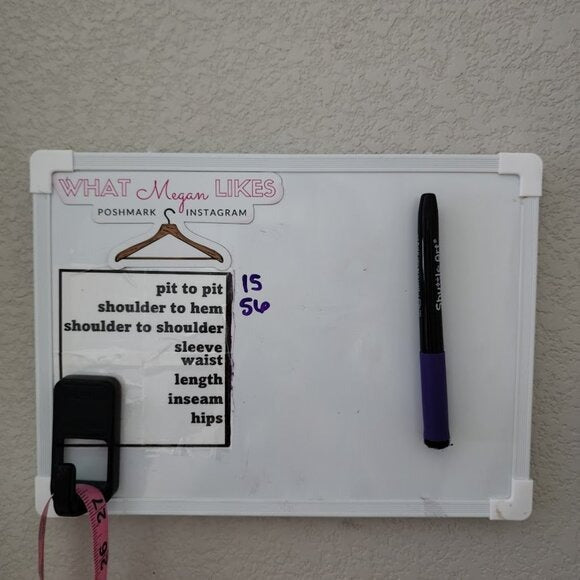 WHAT Megan LIKES
POSHMARK INSTAGRAM
pit to pit 15
shoulder to hem 56
shoulder to shoulder
sleeve
waist
length
inseam
hips
Shuttle Art
27
26